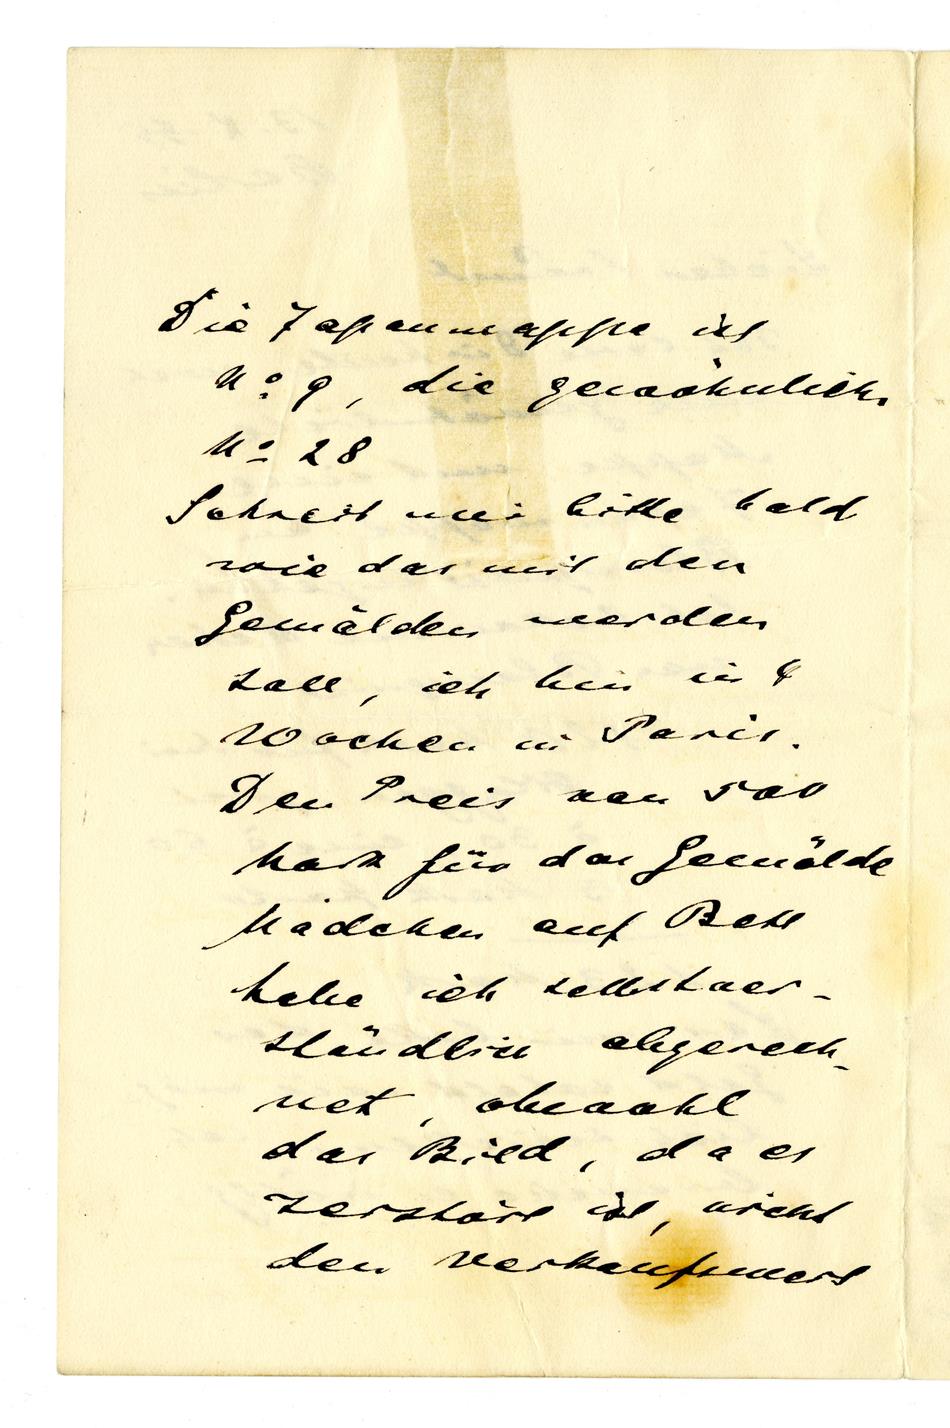 Die Japanmappe ist
No. 9, die gewöhnliche
No 28
Schreib mir bitte bald
wie das mit den
Gemälden werden
soll, ich bin in 4
Wochen in Paris.
Den Preis von 500
Mark für das Gemälde
Mädchen auf Bett
habe ich selbstver-
ständlich abgerech-
net, obwohl
das Bild, da es
zerstört ist, nicht
den Verkaufswert